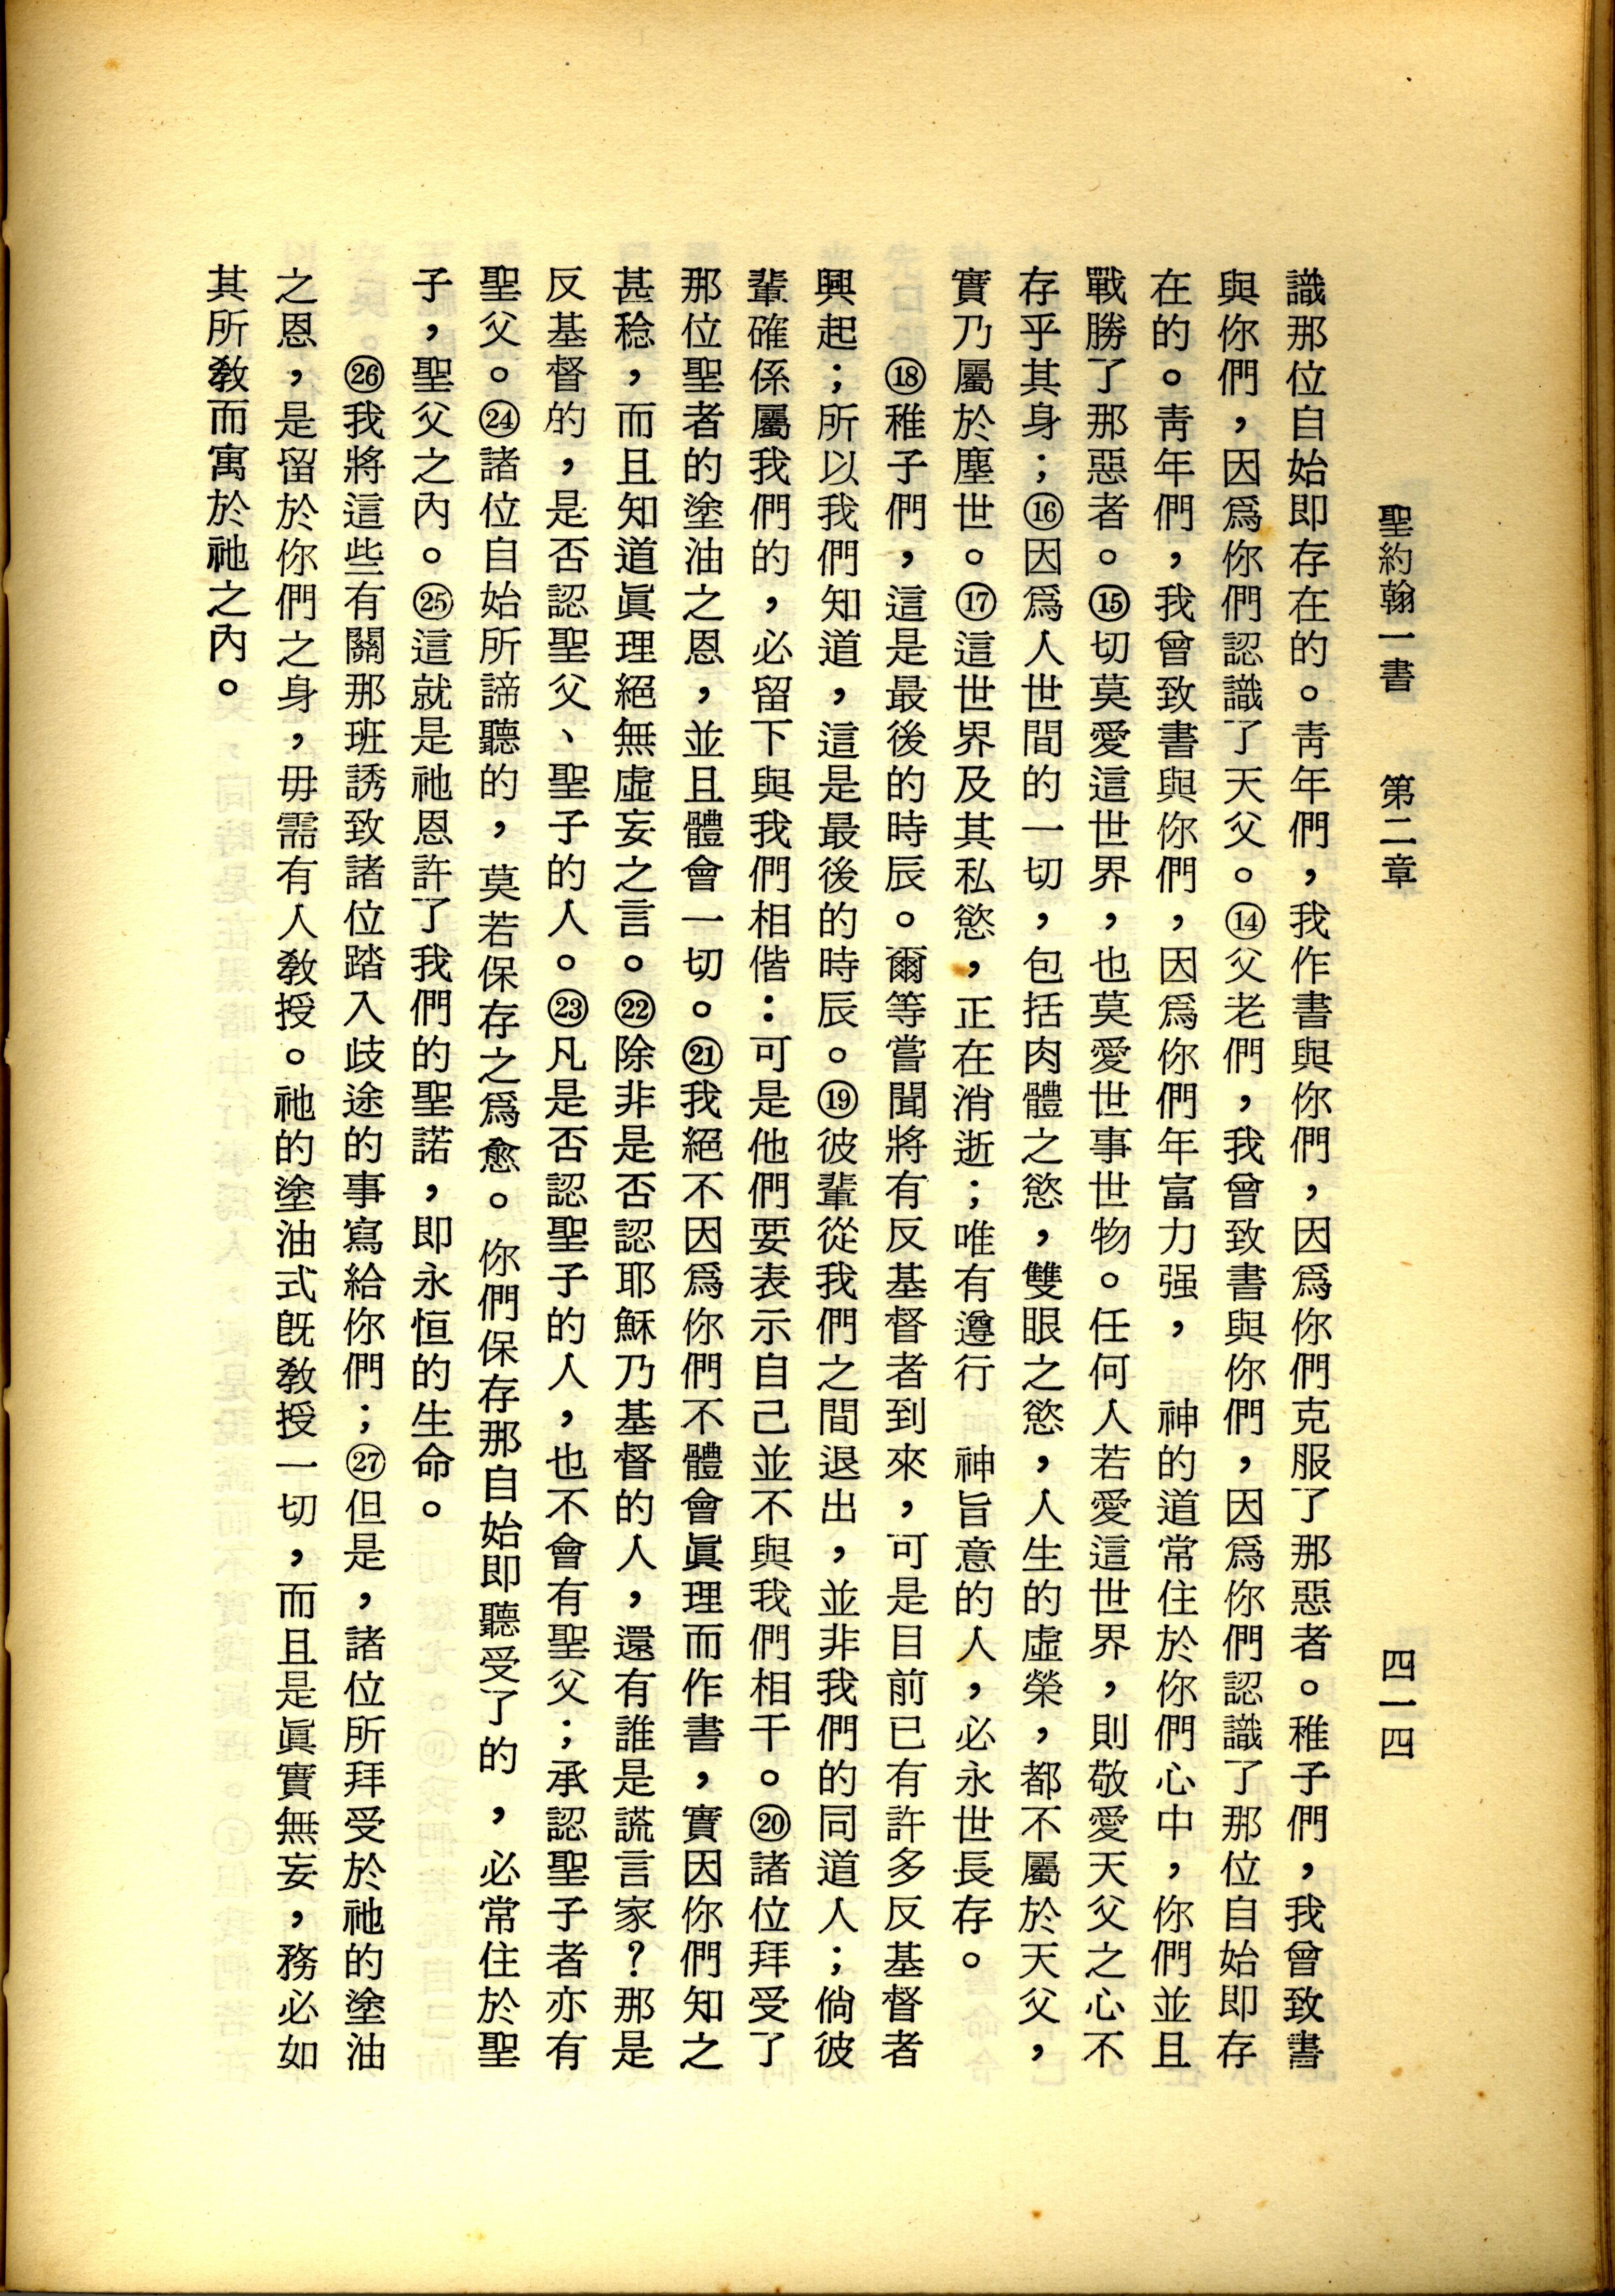 聖約翰一書　第二章　四一四
識那位自始即存在的。靑年們，我作書與你們，因爲你們克服了那惡者。稚子們，我曾致書
與你們，因爲你們認識了天父。⑭父老們，我曾致書與你們，因爲你們認識了那位自始即存
在的。靑年們，我曾致書與你們，因爲你們年富力强，　神的道常住於你們心中，你們並且
戰勝了那惡者。⑮切莫愛這世界，也莫愛世事世物。任何人若愛這世界，則敬愛天父之心不
存乎其身；⑯因爲人世間的一切，包括肉體之慾，雙眼之慾，人生的虛榮，都不屬於天父，
實乃屬於塵世。⑰這世界及其私慾，正在消逝；唯有遵行　神旨意的人，必永世長存。
⑱稚子們，這是最後的時辰。爾等嘗聞將有反基督者到來，可是目前已有許多反基督者
興起；所以我們知道，這是最後的時辰。⑲彼輩從我們之間退出，並非我們的同道人；倘彼
輩確係屬我們的，必留下與我們相偕：可是他們要表示自己並不與我們相干。⑳諸位拜受了
那位聖者的塗油之恩，並且體會一切。㉑我絕不因爲你們不體會眞理而作書，實因你們知之
甚稔，而且知道眞理絕無虛妄之言。㉒除非是否認耶穌乃基督的人，還有誰是謊言家？那是
反基督的，是否認聖父、聖子的人。㉓凡是否認聖子的人，也不會有聖父；承認聖子者亦有
聖父。㉔諸位自始所諦聽的，莫若保存之爲愈。你們保存那自始即聽受了的，必常住於聖
子，聖父之內。㉕這就是祂恩許了我們的聖諾，即永恒的生命。
㉖我將這些有關那班誘致諸位踏入歧途的事寫給你們；㉗但是，諸位所拜受於祂的塗油
之恩，是留於你們之身，毋需有人敎授。祂的塗油式旣敎授一切，而且是眞實無妄，務必如
其所敎而寓於祂之內。